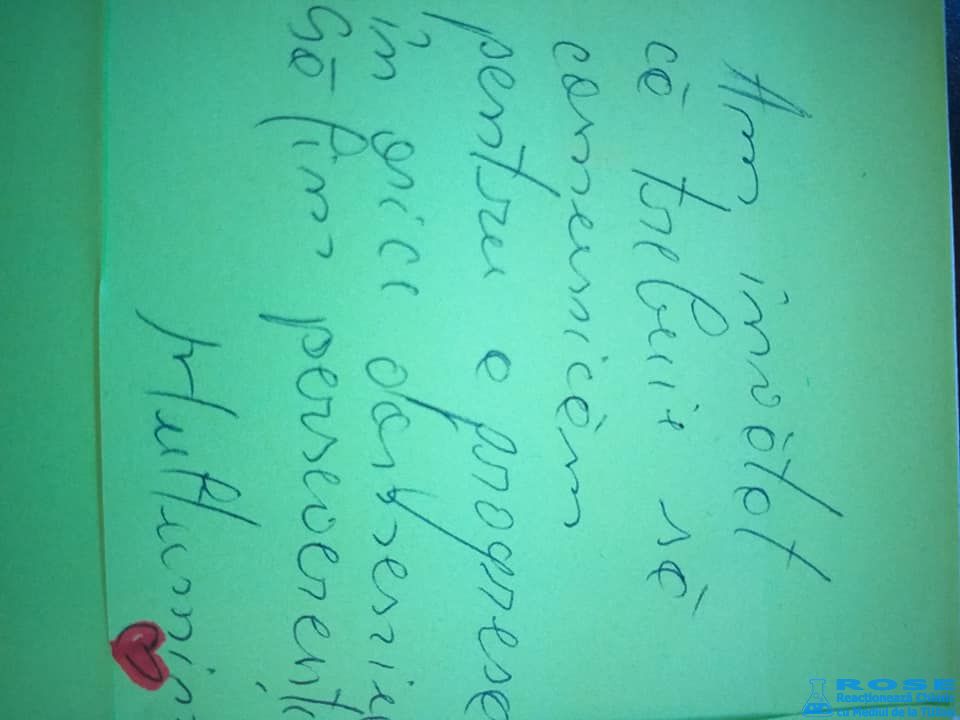 Am învățat
că trebuie să
comunicăm
pentru a progresa
în orice domeniu
Să fim perseverenți
Mulțumim
ROSE
Reacționează Chimic
cu Mediul de la Tulcea